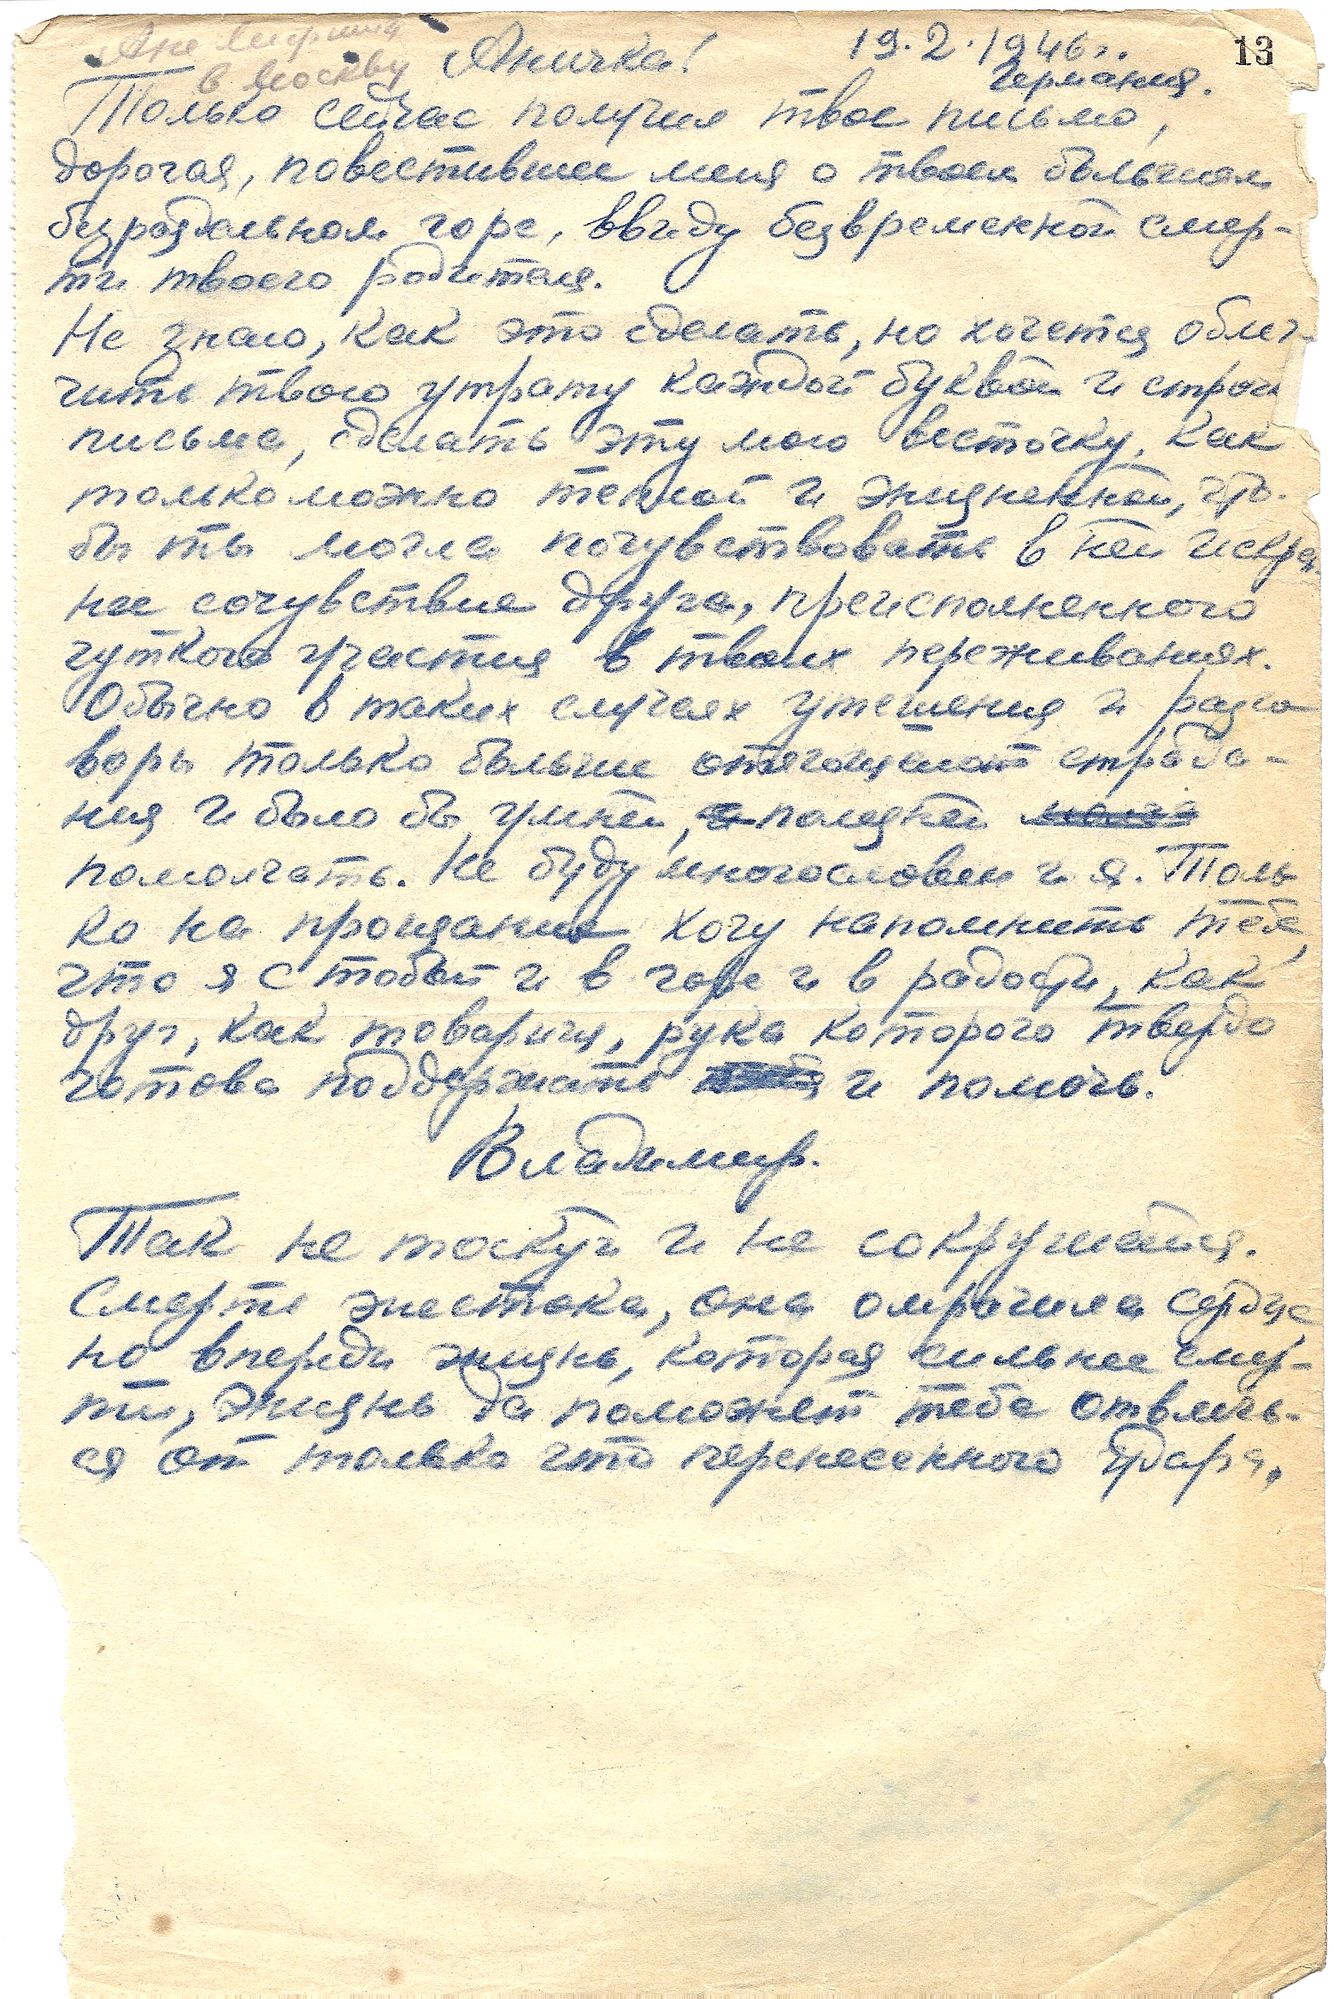 13
19.2.1946 г.
Германия.
Ане
в Москву
Аничка!
Только сейчас получил твое письмо,
дорогая, повестившее меня о твоем большом
безраздельном горе, ввиду безвременной смер-
ти твоего родителя.
Не знаю, как это сделать, но хочется облег-
чить твою утрату каждой буквой и строкой
письма, сделать эту мою весточку, как
только можно теплой и жизненной, что-
бы ты могла почувствовать в ней искрен-
нее сочувствие друга, преисполненного
чуткого участия в твоих переживаниях.
Обычно в таких случаях утешения и разго
воры только больше отягощают страда-
ния и было бы умней, полезней
помолчать. Не буду многословен и я. Толь
ко на прощание хочу напомнить тебе,
что я с тобой и в горе и в радости, как
друг, как товарищ, рука которого твердо
готова поддержать и помочь.
Владимир.
Так не тоскуй и не сокрушайся.
Смерть жестока, она омрачила сердце,
но впереди жизнь, которая сильнее смер-
ти, жизнь да поможет тебе отвлечь-
ся от только что перенесенного удара.